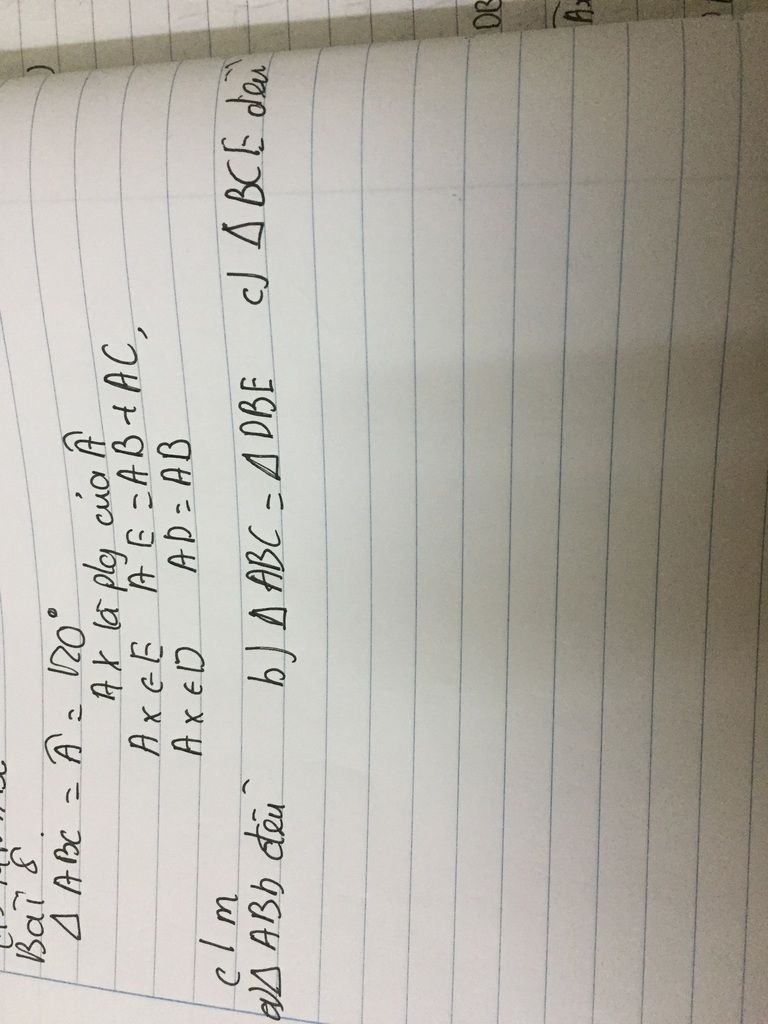 Bài 8
Δ ABC = Â = 120°
Ax là plg của Â
Ax ∈ E AE = AB + AC,
Ax ∈ D AD = AB
c/m
a) Δ ABD đều b) Δ ABC = Δ DBE c) Δ BCE đều
DB